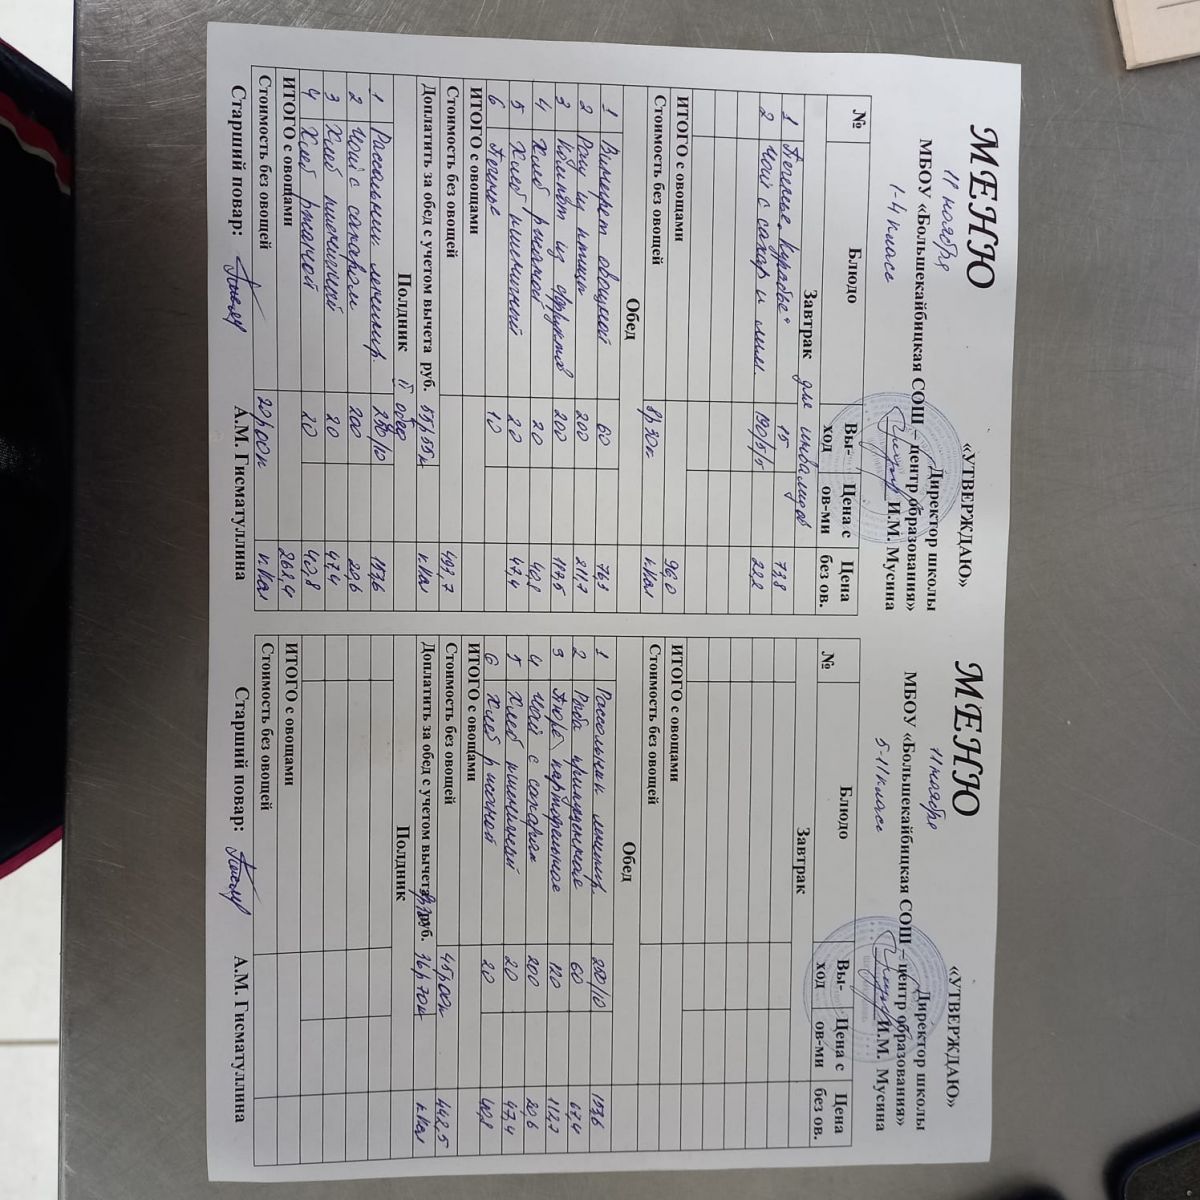 «УТВЕРЖДАЮ»
Директор школы
МБОУ «Большекайбицкая СОШ – центр образования»
И.М. Мусина
МЕНЮ
11 ноября
1-4 класс
№ Блюдо Вы-ход Цена с ов-ми Цена без ов.
Завтрак для инвалидов
1 Печенье „Курабье“ 15 73.8
2 Чай с сахар и лим. 190/5/5 22,2
ИТОГО с овощами 96.0
Стоимость без овощей 8р30к ккал
Обед
1 Винегрет овощной 60 76.1
2 Рагу из птицы 200 211,7
3 Компот из фруктов 200 113,5
4 Хлеб ржаной 20 40,8
5 Хлеб пшеничный 20 47,4
6 Печенье 10
ИТОГО с овощами
Стоимость без овощей 492,7
Доплатить за обед с учетом вычета руб. 55р55к ккал
Полдник II обед
1 Рассольник ленингр. 250/10 153,6
2 Чай с сахаром 200 20,6
3 Хлеб пшеничный 20 47.4
4 Хлеб ржаной 20 40,8
ИТОГО с овощами 262,4
Стоимость без овощей 20р00к ккал
Старший повар: А.М. Гисматуллина
«УТВЕРЖДАЮ»
Директор школы
МБОУ «Большекайбицкая СОШ – центр образования»
И.М. Мусина
МЕНЮ
11 ноября
5-11 класс
№ Блюдо Вы-ход Цена с ов-ми Цена без ов.
Завтрак
ИТОГО с овощами
Стоимость без овощей
Обед
1 Рассольник ленингр. 250/10 153,6
2 Рыба припущенная 60 67,4
3 Пюре картофельное 120 112,7
4 Чай с сахаром 200 20,6
5 Хлеб пшеничный 20 47,4
6 Хлеб ржаной 20 40,8
ИТОГО с овощами
Стоимость без овощей 45р00к 442,5
Доплатить за обед с учетом вычета руб. 36р70к ккал
Полдник
ИТОГО с овощами
Стоимость без овощей
Старший повар: А.М. Гисматуллина